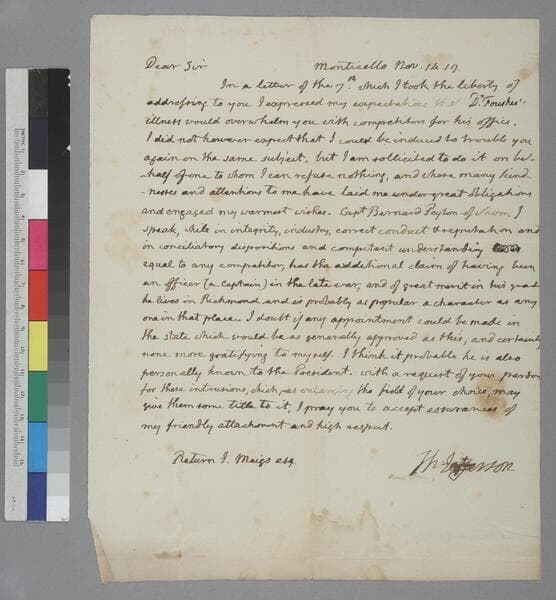 Dear Sir Monticello Nov. 14. 19.
In a letter of the 7th. which I took the liberty of
addressing to you I expressed my expectations that Dr. Foushee's
illness would overwhelm you with competitors for his office.
I did not however expect that I could be induced to trouble you
again on the same subject. but I am sollicited to do it on be-
-half of one to whom I can refuse nothing, and whose many kind-
nesses and attentions to me have laid me under great obligations
and engaged my warmest wishes. Capt Bernard Peyton of whom I
speak, while in integrity, industry, correct conduct & reputation and
in conciliatory dispositions and competent understanding
equal to any competitor, has the additional claim of having been
an officer (a captain) in the late war, and of great merit in his grade
he lives in Richmond and is probably as popular a character as any
one in that place. I doubt if any appointment could be made in
the state which would be as generally approved as this, and certainly
none more gratifying to myself. I think it probable he is also
personally known to the President. with a request of your pardon
for these intrusions, which, as enlarging the field of your choice, may
give them some title to it, I pray you to accept assurances of
my friendly attachment and high respect.
Return J. Meigs esq. Th: Jefferson